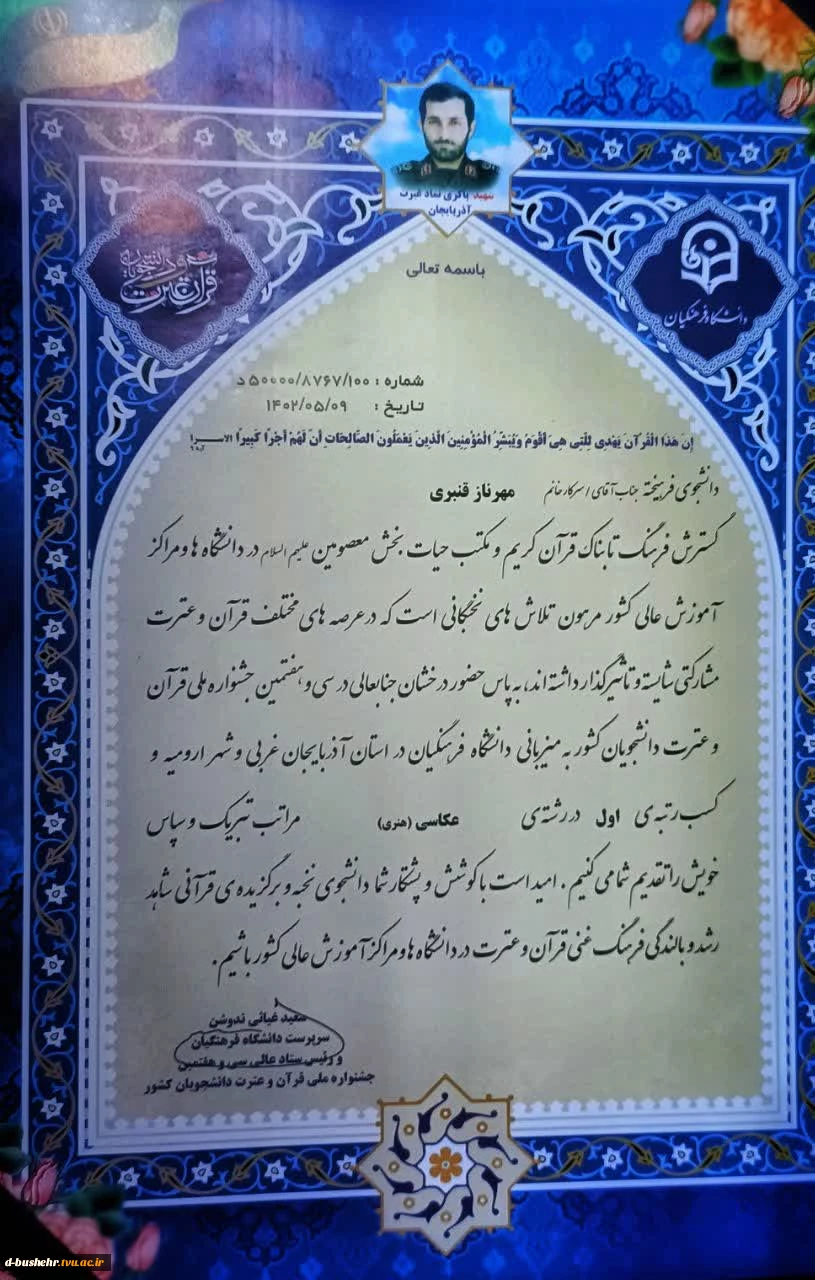 شهید باکری نماد غیرت
آذربایجان
قرآن و عترت
دانشگاه فرهنگیان
باسمه تعالی
شماره : ۵۰۰۰۰/۸۷۶۷/۱۰۰ د
تاریخ : ۱۴۰۲/۰۵/۰۹
إِنَّ هَذَا الْقُرْآنَ يَهْدِی لِلَّتِی هِیَ أَقْوَمُ وَيُبَشِّرُ الْمُؤْمِنِينَ الَّذِينَ يَعْمَلُونَ الصَّالِحَاتِ أَنَّ لَهُمْ أَجْرًا كَبِيرًا الاسرا
دانشجوی فرهیخته جناب آقای / سرکار خانم مهرناز قنبری
گسترش فرهنگ تابناک قرآن کریم و مکتب حیات بخش معصومین علیهم السلام در دانشگاه ها و مراکز
آموزش عالی کشور مرهون تلاش های نخبگانی است که در عرصه های مختلف قرآن و عترت
مشارکتی شایسته و تأثیرگذار داشته اند، به پاس حضور درخشان جنابعالی در سی و هفتمین جشنواره ملی قرآن
و عترت دانشجویان کشور به میزبانی دانشگاه فرهنگیان در استان آذربایجان غربی و شهر ارومیه و
کسب رتبه ی اول در رشته ی عکاسی (هنری) مراتب تبریک و سپاس
خویش را تقدیم شما می کنیم . امید است با کوشش و پشتکار شما دانشجوی نخبه و برگزیده ی قرآنی شاهد
رشد و بالندگی فرهنگ غنی قرآن و عترت در دانشگاه ها و مراکز آموزش عالی کشور باشیم .
سعید غیاثی ندوشن
سرپرست دانشگاه فرهنگیان
و رئیس ستاد عالی سی و هفتمین
جشنواره ملی قرآن و عترت دانشجویان کشور
d-bushehr.tvu.ac.ir